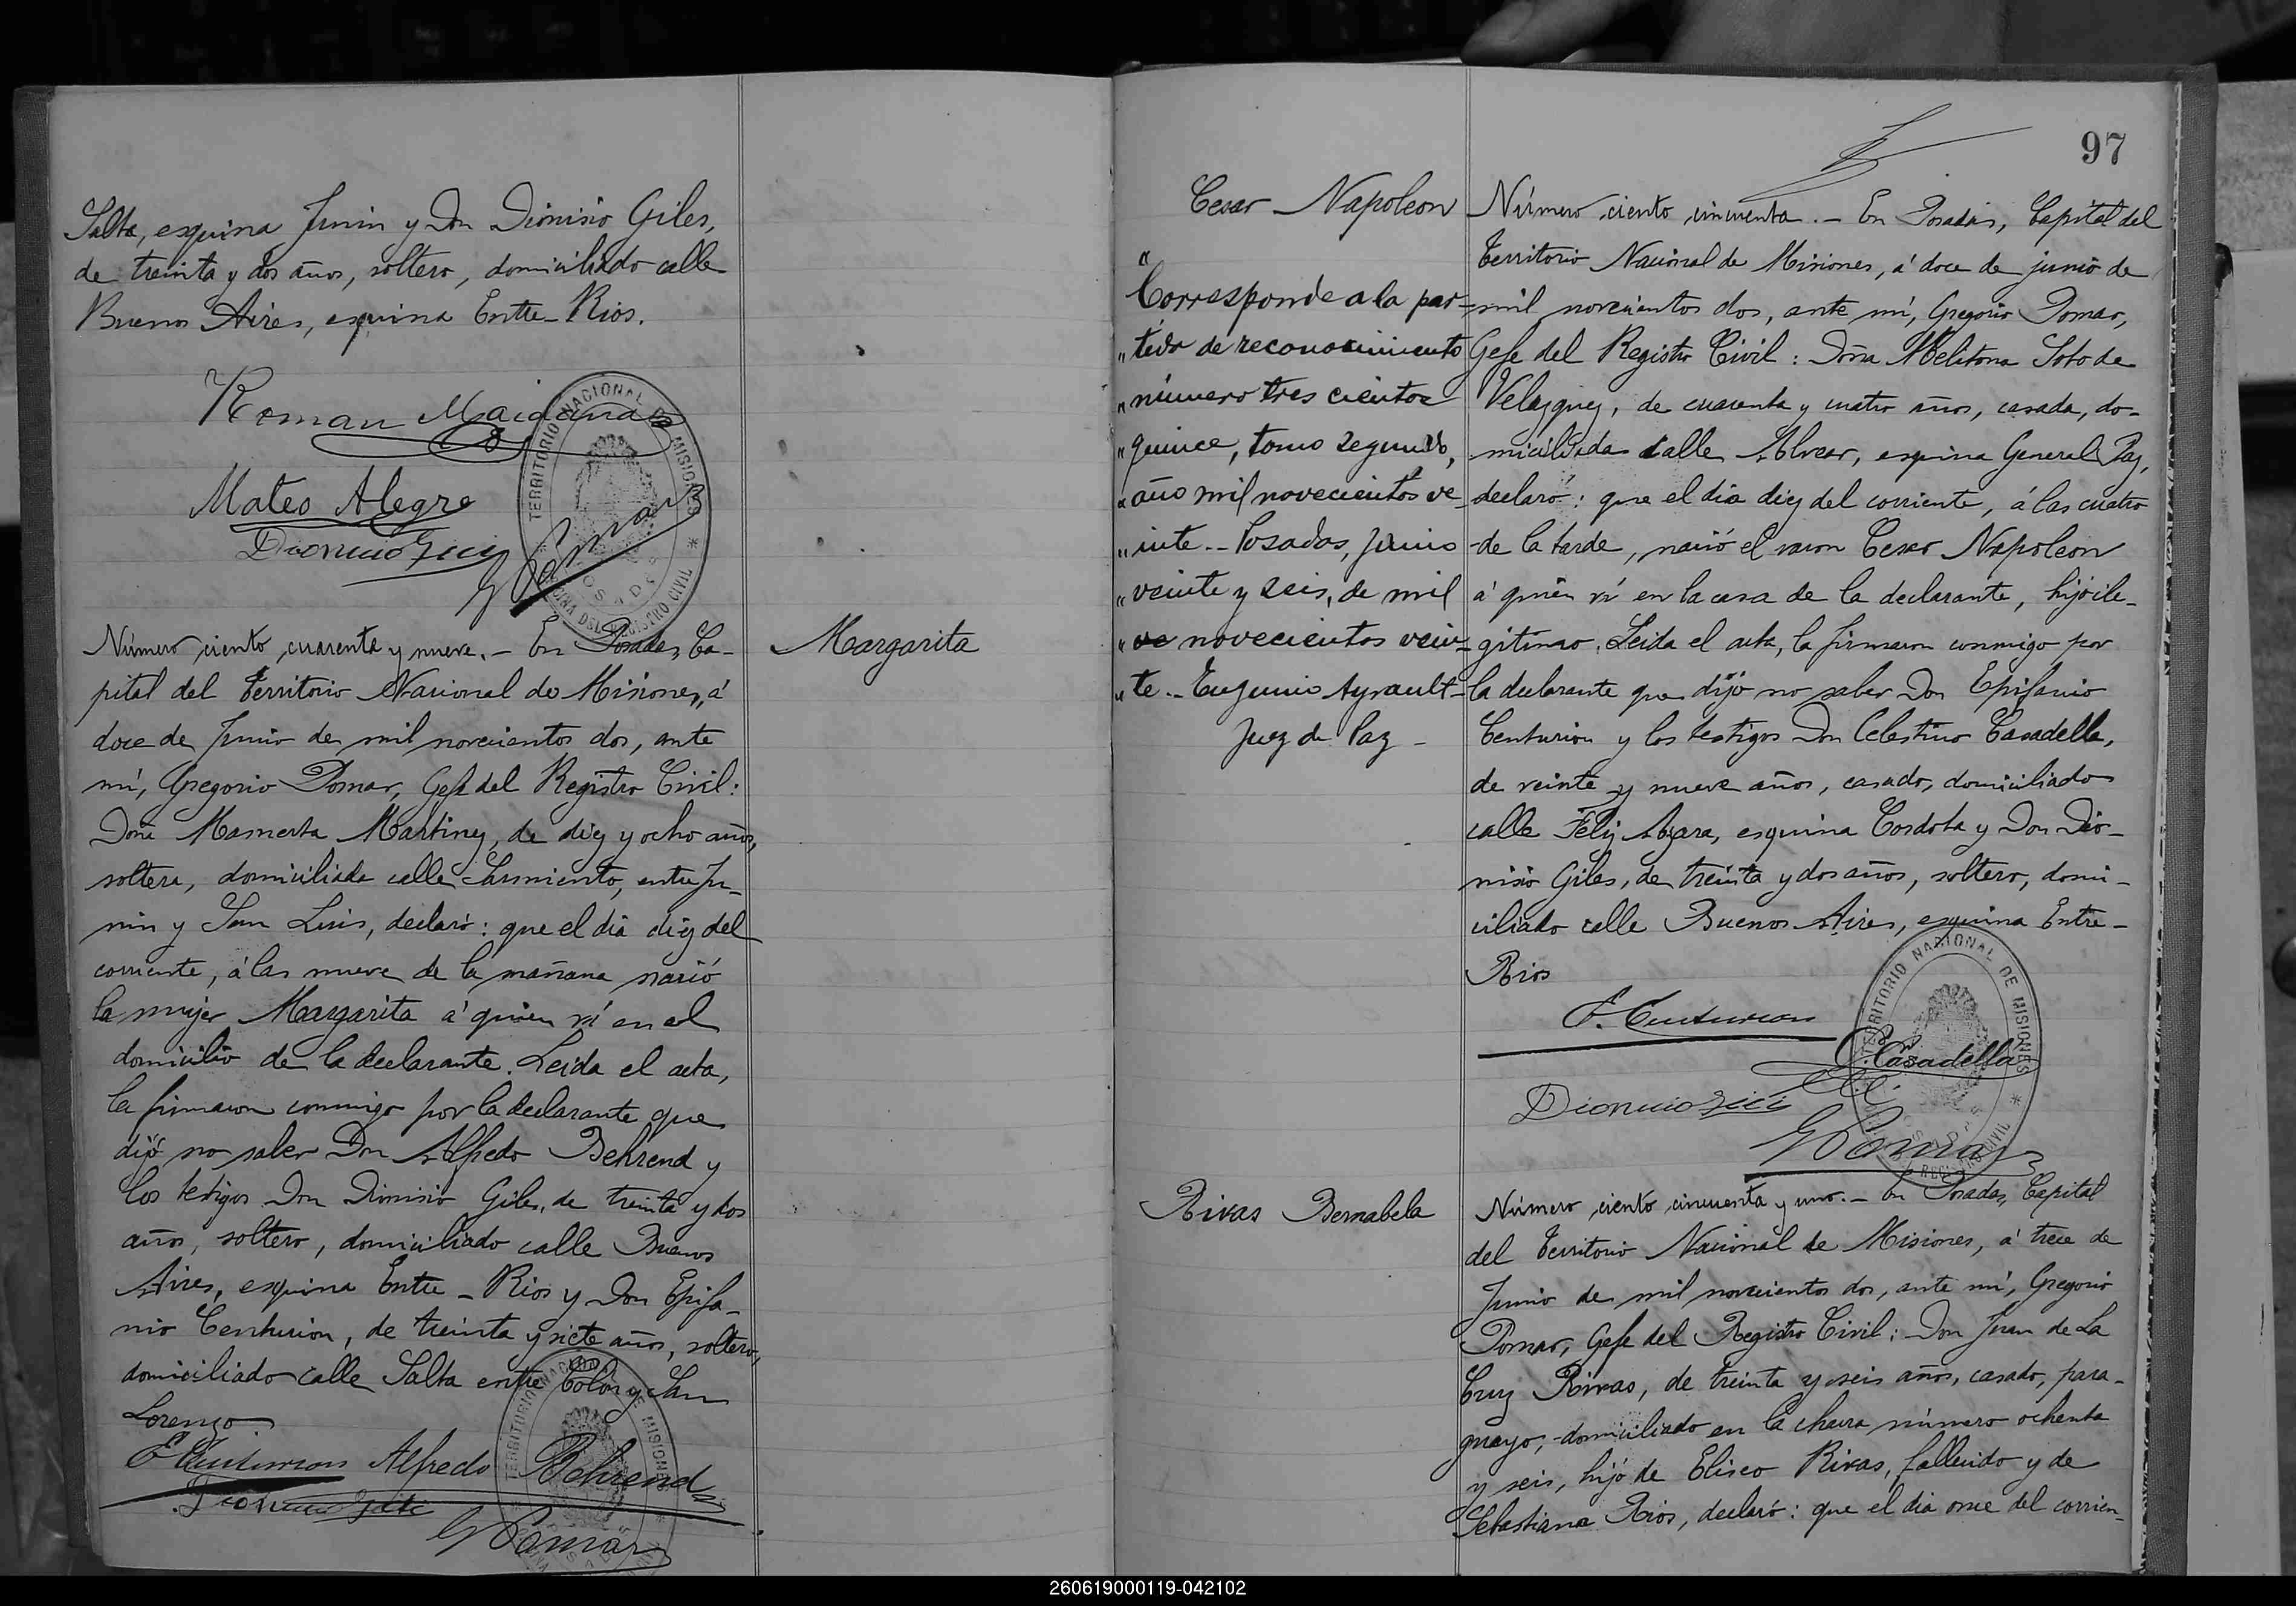 Salta, esquina Junin y Don Dionisio Giles,
de treinta y dos años, soltero, domiciliado calle
Buenos Aires, esquina Entre-Rios.
Roman Maidana
Mateo Alegre
Dionisio Giles
G Pomar
TERRITORIO NACIONAL DE MISIONES
OFICINA DEL REGISTRO CIVIL
POSADAS
Número ciento cuarenta y nueve.- En Posadas, Ca-
pital del Territorio Nacional de Misiones, á
doce de Junio de mil novecientos dos, ante
mí, Gregorio Pomar, Gefe del Registro Civil:
Doña Mamerta Martinez, de diez y ocho años,
soltera, domiciliada calle Sarmiento, entre Ju-
nin y San Luis, declaró: que el dia diez del
corriente, á las nueve de la mañana nació
la mujer Margarita á quien ví en el
domicilio de la declarante. Leida el acta,
la firmaron conmigo por la declarante que
dijo no saber Don Alfredo Behrend y
los testigos Don Dionisio Giles, de treinta y dos
años, soltero, domiciliado calle Buenos
Aires, esquina Entre-Rios y Don Epifa-
nio Centurion, de treinta y siete años, soltero,
domiciliado calle Salta entre Colón y San
Lorenzo
E Centurion Alfredo Behrend
Dionisio Giles
G Pomar
Margarita
97
Cesar Napoleon
"
Corresponde a la par-
" tida de reconocimiento
" número tres cientos
" quince, tomo segundo,
" año mil novecientos ve
" inte.- Posadas, Junio
" veinte y seis, de mil
" ve novecientos vein-
" te.- Eugenio Ayrault-
Juez de Paz -
Número ciento cincuenta.- En Posadas, Capital del
Territorio Nacional de Misiones, á doce de junio de
mil novecientos dos, ante mí, Gregorio Pomar,
Gefe del Registro Civil: Doña Melitona Soto de
Velazquez, de cuarenta y cuatro años, casada, do-
miciliada calle Alvear, esquina General Paz,
declaró: que el dia diez del corriente, á las cuatro
de la tarde, nació el varon Cesar Napoleon
á quien ví en la casa de la declarante, hijo ile-
gitimo. Leida el acta, la firmaron conmigo por
la declarante que dijo no saber Don Epifanio
Centurion y los testigos Don Celestino Casadella,
de veinte y nueve años, casado, domiciliado
calle Feliz Azara, esquina Cordoba y Don Dio-
nisio Giles, de treinta y dos años, soltero, domi-
ciliado calle Buenos Aires, esquina Entre-
Rios
E. Centurion
C. Casadella
Dionisio Giles
G Pomar
TERRITORIO NACIONAL DE MISIONES
REGISTRO CIVIL
Rivas Bernabela
Número ciento cincuenta y uno.- En Posadas, Capital
del Territorio Nacional de Misiones, á trece de
Junio de mil novecientos dos, ante mí, Gregorio
Pomar, Gefe del Registro Civil: Don Juan de La
Cruz Rivas, de treinta y seis años, casado, para-
guayo, domiciliado en la chacra número ochenta
y seis, hijo de Eliseo Rivas, fallecido y de
Sebastiana Rios, declaró: que el dia once del corrien-
260619000119-042102